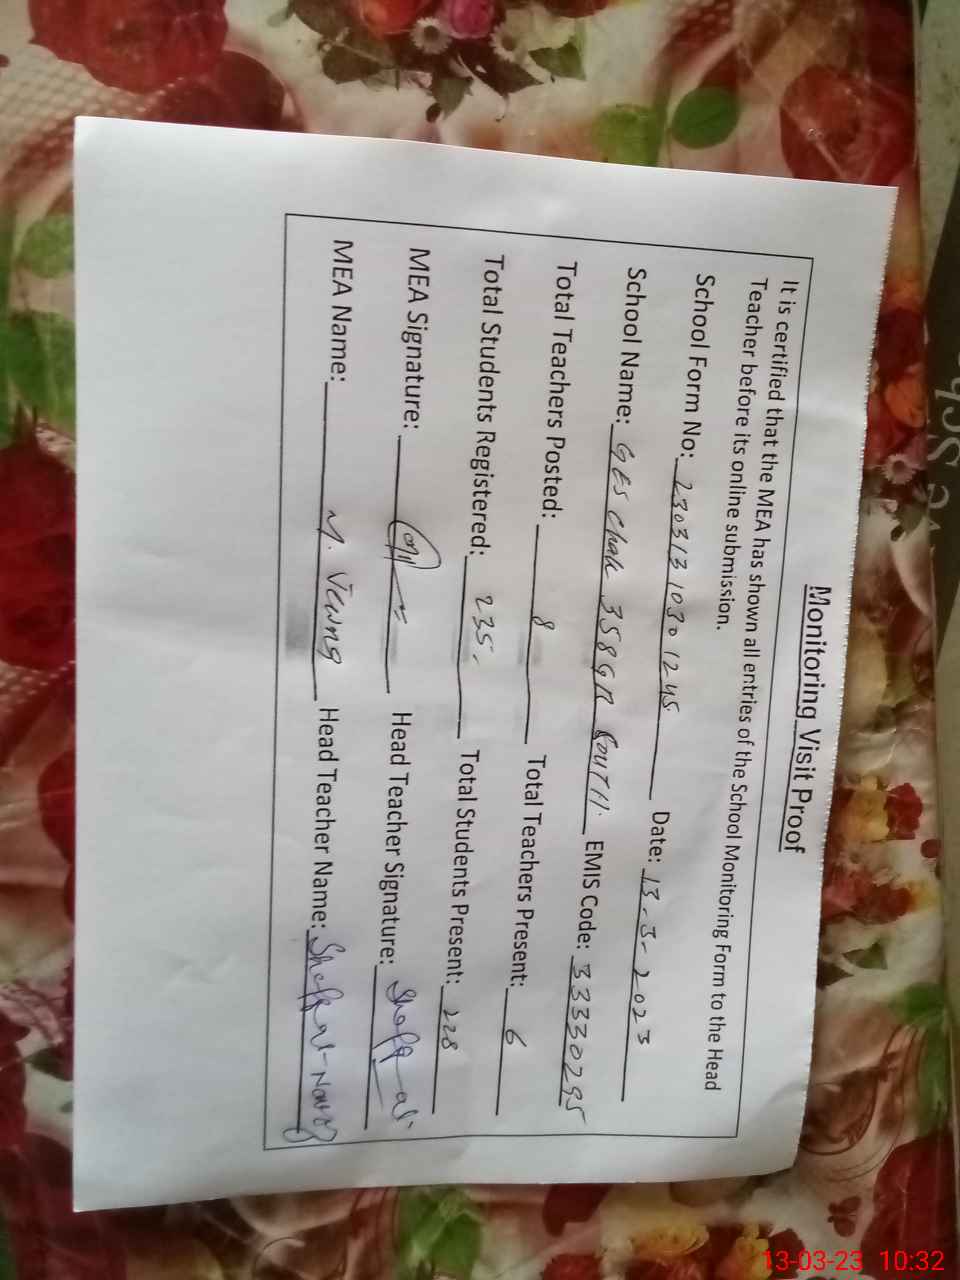 Monitoring Visit Proof
It is certified that the MEA has shown all entries of the School Monitoring Form to the Head
Teacher before its online submission.
School Form No: 23031310301245 Date: 13-3-2023
School Name: GES Chak 358GR SOUTH. EMIS Code: 33330295
Total Teachers Posted: 8 Total Teachers Present: 6
Total Students Registered: 235. Total Students Present: 228
MEA Signature: Head Teacher Signature:
MEA Name: M. Head Teacher Name:
13-03-23 10:32